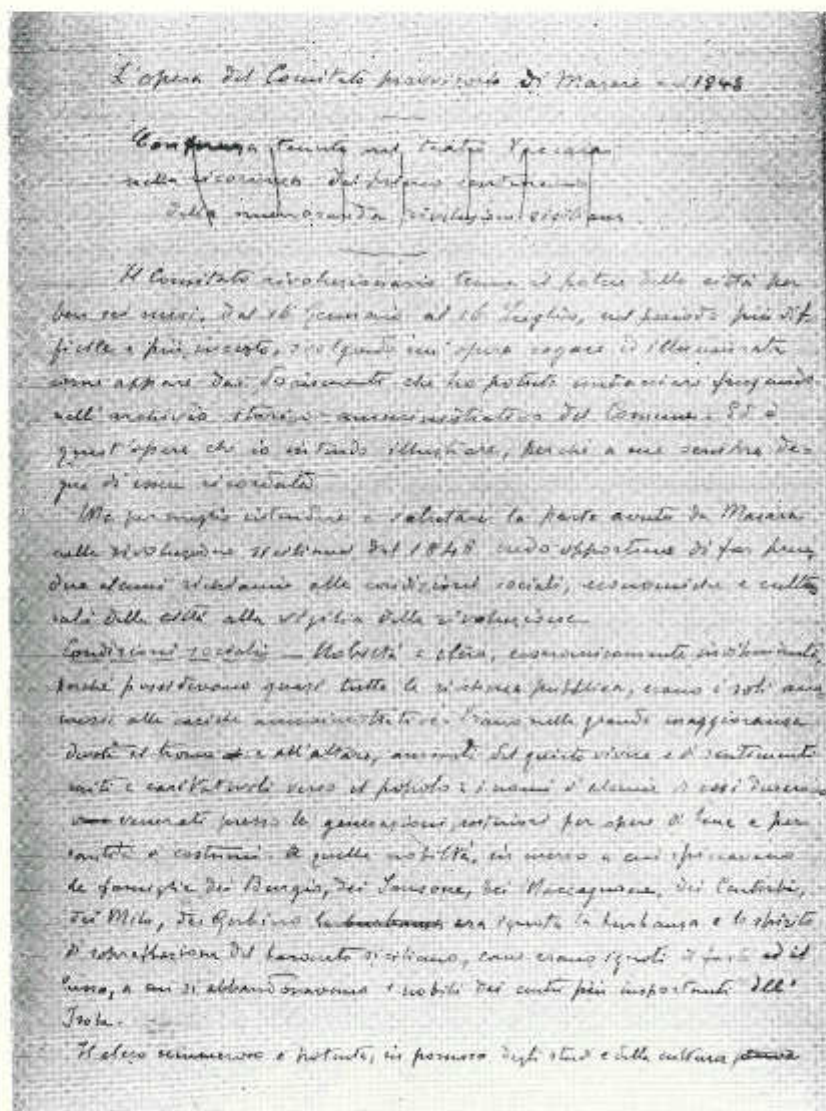 L'opera del Comitato provvisorio di Mazara nel 1848
Conferenza tenuta nel teatro
nella ricorrenza del primo centenario
della memoranda rivoluzione siciliana
Il Comitato rivoluzionario tenne il potere della città per
ben sei mesi, dal 16 Gennaio al 16 Luglio, nel periodo più dif-
ficile e più incerto, svolgendo un'opera sagace ed illuminata
come appare dai documenti che ho potuto rintracciare frugando
nell'archivio storico-amministrativo del Comune. Ed è
quest'opera che io intendo illustrare, perché a me sembra de-
gna di essere ricordata
Ma per meglio intendere e valutare la parte avuta da Mazara
nella rivoluzione siciliana del 1848 credo opportuno di far prece-
dere alcuni richiami alle condizioni sociali, economiche e cultu-
rali della città alla vigilia della rivoluzione
Condizioni sociali - Nobiltà e clero, economicamente
perché possedevano quasi tutta la ricchezza pubblica, erano i soli am-
messi alle cariche amministrative. Erano nella grande maggioranza
devoti al trono e all'altare, amanti del quieto vivere e di sentimenti
miti e caritatevoli verso il popolo: i nomi d'alcuni
venerati presso le generazioni posteriori per opere di bene e per
santità di costumi. A quella nobiltà, in mezzo a cui spiccavano
le famiglie dei Burgio, dei Sansone, dei Maccagnone, dei
dei Milo, dei era ignota la burbanza e lo spirito
di sopraffazione del baronato siciliano, come erano ignoti il fasto ed il
lusso, a cui si abbandonavano i nobili dei centri più importanti dell'
Isola.
Il clero numeroso e potente, in possesso degli studi e della cultura